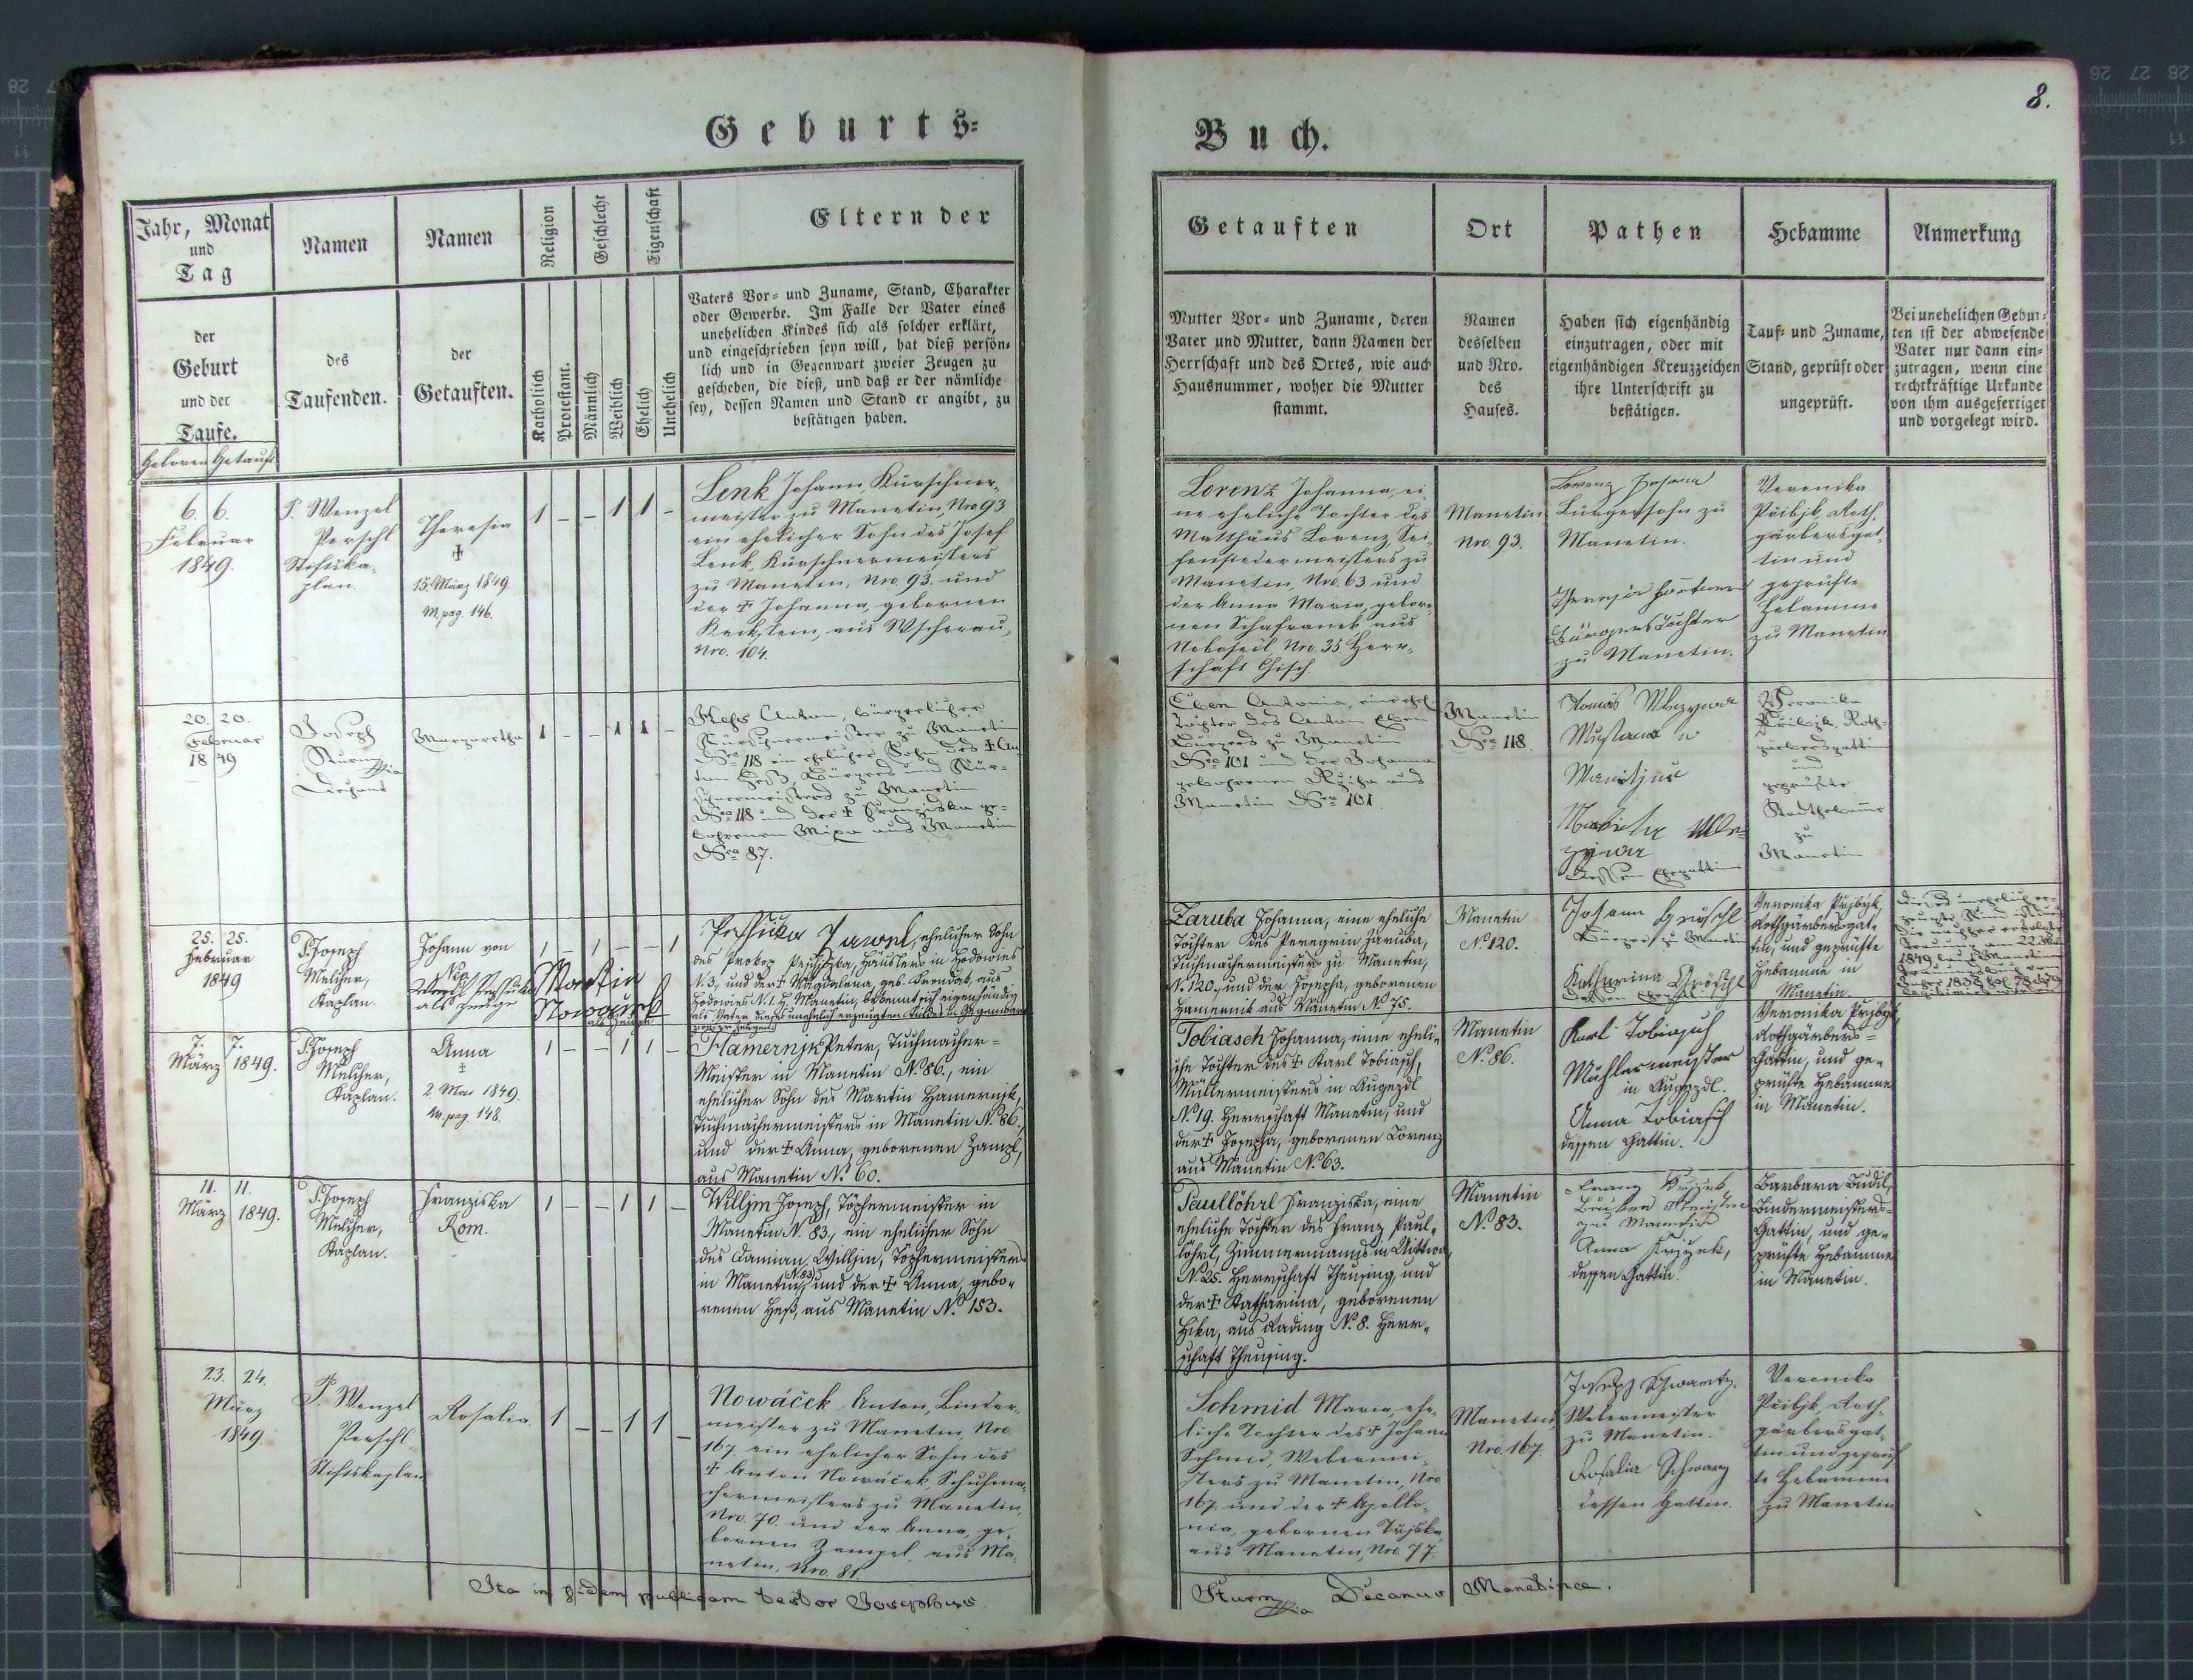 8.
Geburts=
Buch.
Jahr, Monat
und
Tag
der
Geburt
und der
Taufe.
Geboren Getauft
Namen
des
Taufenden.
Namen
der
Getauften.
Religion
Katholisch
Protestant.
Geschlecht
Männlich
Weiblich
Eigenschaft
Ehelich
Unehelich
Eltern der
Vaters Vor= und Zuname, Stand, Charakter
oder Gewerbe. Im Falle der Vater eines
unehelichen Kindes sich als solcher erklärt,
und eingeschrieben seyn will, hat dieß persön=
lich und in Gegenwart zweier Zeugen zu
geschehen, die dieß, und daß er der nämliche
sey, dessen Namen und Stand er angibt, zu
bestätigen haben.
Getauften
Mutter Vor= und Zuname, deren
Vater und Mutter, dann Namen der
Herrschaft und des Ortes, wie auch
Hausnummer, woher die Mutter
stammt.
Ort
Namen
desselben
und Nro.
des
Hauses.
Pathen
Haben sich eigenhändig
einzutragen, oder mit
eigenhändigen Kreuzzeichen
ihre Unterschrift zu
bestätigen.
Hebamme
Tauf= und Zuname,
Stand, geprüft oder
ungeprüft.
Anmerkung
Bei unehelichen Gebur=
ten ist der abwesende
Vater nur dann ein=
zutragen, wenn eine
rechtkräftige Urkunde
von ihm ausgefertiget
und vorgelegt wird.
6. 6.
Februar
1849.
P. Wenzel
Perschl
Stiftska-
plan.
Theresia
†
15. März 1849
M. pag. 146.
1 – – 1 1 –
Lenk Johann, Kürschner-
meister zu Manetin, Nro 93
ein ehelicher Sohn des Josef
Lenk, Kürschnermeisters
zu Manetin, Nro. 93. und
der † Johanna, gebornen
aus Wscherau,
Nro. 104.
Lorenz Johanna, ei-
ne eheliche Tochter des
Matthäus Lorenz, Sei-
fensiedermeisters zu
Manetin, Nro. 63 und
der Anna Maria, gebor-
nen Schafranek aus
Nro. 35 Herr-
schaft Chisch.
Manetin
Nro. 93.
Lorenz Johann
Bürgerssohn zu
Manetin.
Theresia
Bürgers Tochter
zu Manetin.
Veronika
Přibjk, Roth-
gärbersgat-
tin und
geprüfte
Hebamme
zu Manetin
20. 20.
Februar
1849
Joseph
Sturm
Dechant
Margaretha
1 – – 1 1 –
Heß Anton, bürgerlicher
Kürschnermeister zu Manetin
Nro 118 ein ehelicher Sohn des † An
ton Heß, Bürgers und Kür-
schnermeisters zu Manetin
Nro 118 und der † Franziska ge-
bohrenen aus Manetin
Nro 87.
Eben Antonia, eine ehel.
Tochter des Anton Eben
Bürgers zu Manetin
Nro 101 und der Johanna
gebohrenen aus
Manetin Nro 101
Manetin
Nro 118
Veronika
Přibjk, Roth-
gärbersgattin
und
geprüfte
Stadthebamme
zu
Manetin
dessen Ehegattin
25. 25.
Februar
1849
P. Joseph
Melcher,
Kaplan.
Johann von
als Zeuge
1 – 1 – – 1
Martin
Nowaček
als Zeuge
ehelicher Sohn
des Prokop Häuslers in Hodowies
N. 3, und der † Magdalena, geb. aus
Hodowies N. 1. H. Manetin, bekennt sich eigenhändig
als Vater dieses unehelich erzeugten Kindes in Gegenwart
zweier Zeugen.
Zaruba Johanna, eine eheliche
Tochter des Peregrin Zaruba,
Tuchmachermeisters zu Manetin,
N. 120., und der Josepha, geborenen
Hamernik aus Manetin No 75.
Manetin
No 120.
Johann Gröschl
Bürger zu Manetin
Katharina Gröschl
Veronika Přjbyk,
Rothgärbersgat-
tin, und geprüfte
Hebamme in
Manetin.
7. 7.
März 1849.
P. Joseph
Melcher,
Kaplan.
Anna
†
2. Mai 1849.
M. pag. 148.
1 – – 1 1 –
Hamernjk Peter, Tuchmacher=
Meister in Manetin No 86., ein
ehelicher Sohn des Martin Hamernjk,
Tuchmachermeisters in Manetin No 86.
und der † Anna, geborenen Zampl,
aus Manetin No 60.
Tobiasch Johanna, eine eheli-
che Tochter des † Karl Tobiasch,
Müllermeisters in Augezdl
No 19. Herrschaft Manetin, und
der † Josepha, geborenen Lorenz
aus Manetin No 63.
Manetin
No 86.
Karl Tobiasch
Mühlermeister
in Augezdl.
Anna Tobiasch
dessen Gattin.
Veronika Přjbyk,
Rothgärbers=
Gattin, und ge-
prüfte Hebamme
in Manetin.
11. 11.
März 1849.
P. Joseph
Melcher,
Kaplan.
Franziska
Rom.
1 – – 1 1 –
Willjm Joseph, Töpfermeister in
Manetin No 83., ein ehelicher Sohn
des Damian Willjm, Töpfermeisters
in Manetin N. 83, und der † Anna, gebo-
renen Heß, aus Manetin No 153.
Paullöhrl Franziska, eine
eheliche Tochter des Franz Paul-
löhrl, Zimmermanns in
No 25. Herrschaft Theusing, und
der † Katharina, geborenen
Hika, aus Rading No 8. Herr-
schaft Theusing.
Manetin
No 83.
Franz
zu Manetin
Anna
dessen Gattin.
Barbara Budil,
Bindermeisters=
Gattin, und ge-
prüfte Hebamme
in Manetin.
23. 24.
März
1849.
P. Wenzel
Perschl
Stiftskaplan
Rosalia.
1 – – 1 1 –
Nowáček Anton, Binder-
meister zu Manetin, Nro.
167. ein ehelicher Sohn des
† Anton Nowáček, Schuhma-
chermeisters zu Manetin,
Nro. 70. und der Anna, ge-
bornen Zampel, aus Ma-
netin, Nro. 81
Schmid Maria, ehe-
liche Tochter des † Johann
Schmid, Webermei-
sters zu Manetin, Nro
167. und der † Apollo-
nia, gebornen
aus Manetin, Nro. 77.
Manetin,
Nro. 167.
Joseph Schwartz.
Webermeister
zu Manetin.
Rosalia Schwarz
dessen Gattin.
Veronika
Přibjk, Roth-
gärbersgat-
tin und geprüf
te Hebamme
zu Manetin
Ita in fidem publicam testor Josephus
Sturm Decanus Manetinen.